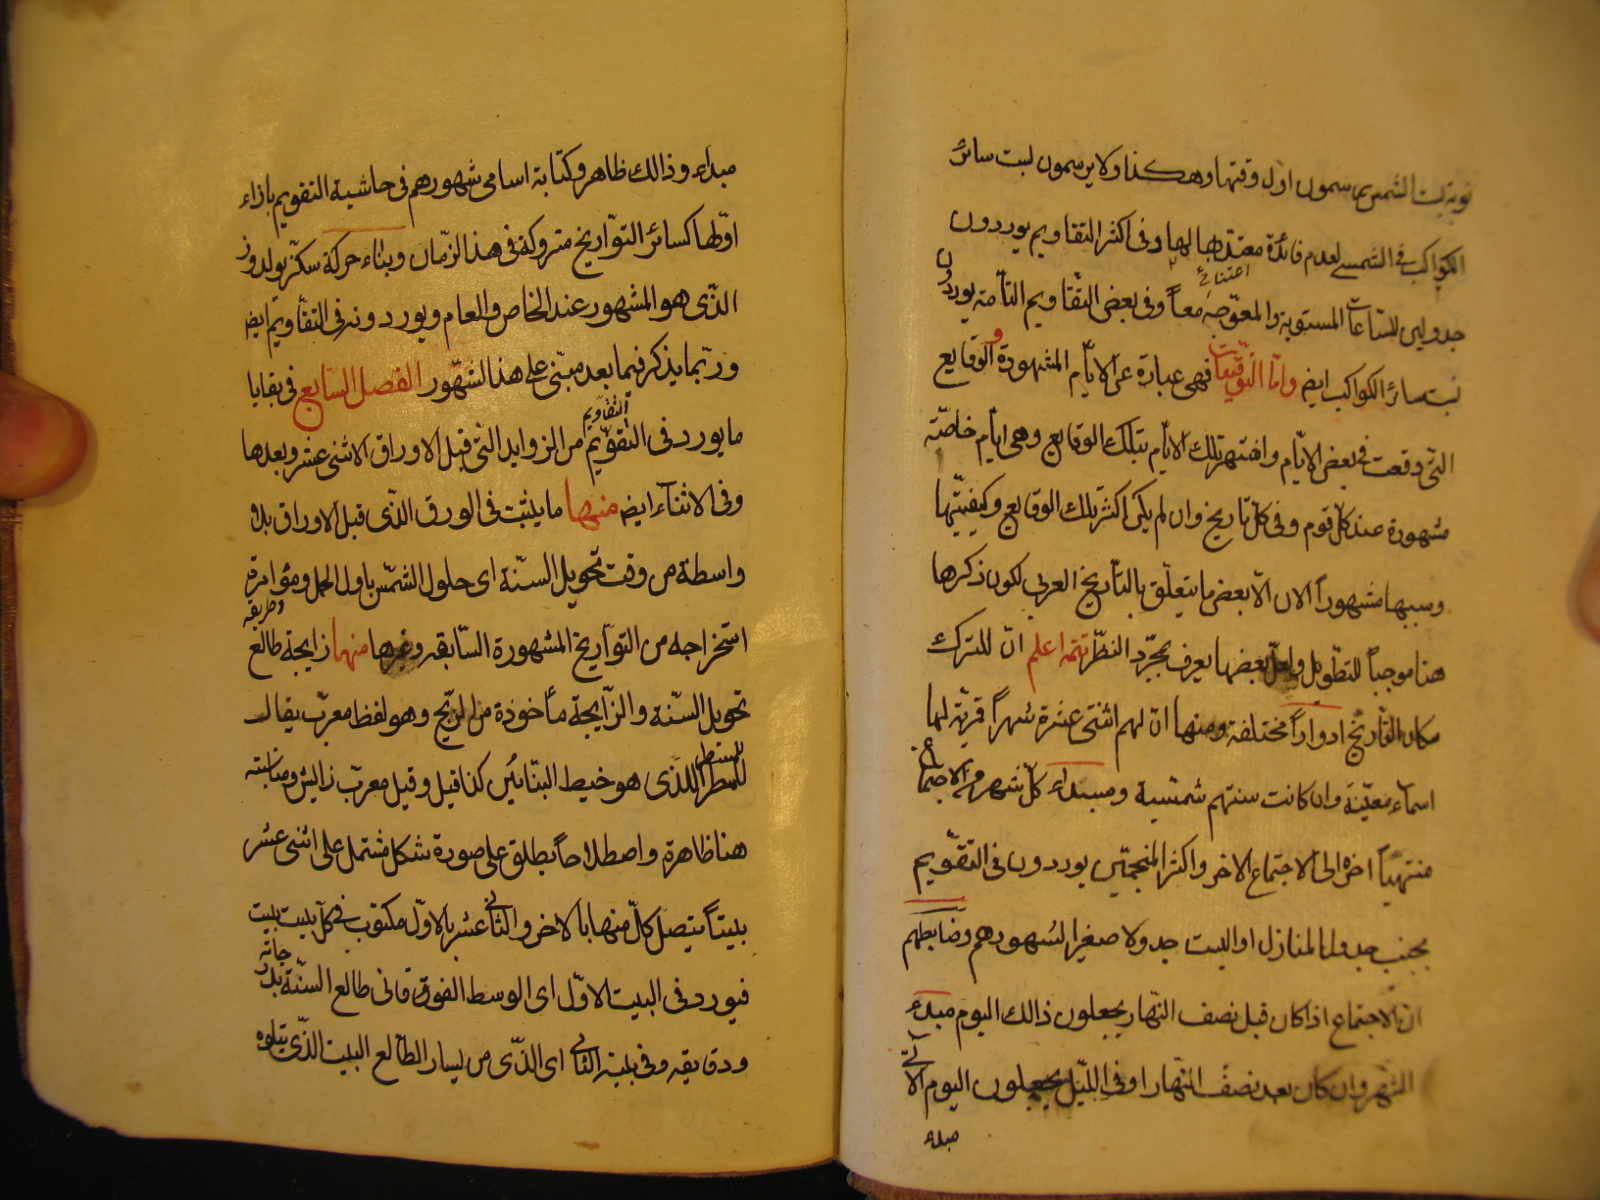 نوبة بت الشمس يرسمون اول وقتها وهكذا ولا يرسمون لبت سائر
الكواكب فى الشمسى لعدم فائدة معتد بها لها وفى اكثر التقاويم يوردون
اعتنائے
جدولين للساعات المستوية والمعوّجة معاً وفى بعض التقاويم التامّة يوردون
بت سائر الكواكب ايض وامّا التوقيعات فهى عبارة عن الايّام المشهورة والوقايع
التى وقعت فى بعض الايّام واشتهر تلك الايّام بتلك الوقايع وهى ايام خاصّة
مشهورة عند كلّ قوم وفى كلّ تاريخ وان لم يكن اكثر تلك الوقايع وكيفيّتها
وسببها مشهوراً الان الاّ بعض ما يتعلّق بالتّاريخ العربى لكون ذكرها
هنا موجباً للتطويل ولعلّ بعضها يعرف بمجرّد النظر تتمة اعلم انّ للترك
مكان التّاريخ ادواراً مختلفة ومنها انّ لهم اثنتى عشرة شهراً قمريّة لها
اسماء معيّنة وان كانت سنتهم شمسية ومبداء كلّ شهر من الاجتماع
منتهياً اخره الى الاجتماع الاخر واكثر المنجمّين يوردون فى التقويم
بجنب جدول المنازل او البت جدولا صغيرا لشهورهم وضابطهم
ان الاجتماع اذا كان قبل نصف النّهار يجعلون ذالك اليوم مبدء
الشهر وان كان بعد نصف النّهار او فى اللّيل يجعلون اليوم الاتى
مبدء
مبداء وذالك ظاهر وكتابة اسامى شهورهم فى حاشية التقويم بازاء
اوّلها كسائر التوّاريخ متروكة فى هذا الزّمان وبناء حركة سكّز يولدوز
الذّى هو المشهور عند الخاص والعام ويوردونه فى التقّاويم ايض
وربّما يذكر فيما بعد مبنّى على هذا الشهّور الفصل السّابع فى بقايا
التقاويم
ما يورد فى التقوّيم من الزوايد التى قبل الاوراق الاثنى عشر وبعدها
وفى الاثناء ايض منها ما يثبت فى الورق الذّى قبل الاوراق بلا
واسطة من وقت تحويل السنّة اى حلول الشمّس باول الحمل ومؤامرة
وطريقه
استخراجه من التوّاريخ المشهورة السّابقة وغيرها منها زايجة طالع
تحويل السّنة والزّايجة مأخوذة من الزّيج وهو لفظ معرّب يقال
للمسطر اللذّى هو خيط البنّائين كذا قيل وقيل معرّب زاليش ومناسبته
هنا ظاهرة واصطلاحاً يطلق على صورة شكل مشتمل على اثنى عشر
بيتاً يتصل كلّ منها بالاخر والثانى عشر بالاوّل مكتوب فى كلّ بيت بيت
فيورد فى البيت الاوّل اى الوسط الفوقانى طالع السنّة بدرجاته
ودقايقه وفى بيته الثانى اى الذّى من يسار الطّالع البيت الذّى يتلوه